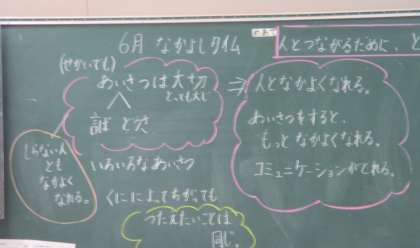 6月 なかよしタイム
人とつながるために、と
(せかいでも)
あいさつは大切
とっても大じ
⇒
人となかよくなれる。
あいさつをすると、
もっとなかよくなれる。
コミュニケーションがとれる。
しらない人
とも
なかよく
なれる。
いろいろなあいさつ
くにによってちがっても
つたえたいことは
同じ。